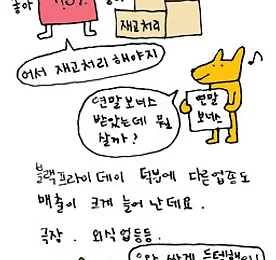 좋아
재고처리
어서 재고처리 해야지
연말 보너스
받았는데 뭘
살까?
연말
보너스
블랙프라이데이 덕분에 다른업종도
매출이 크게 늘어 난데요.
극장. 외식업등등.